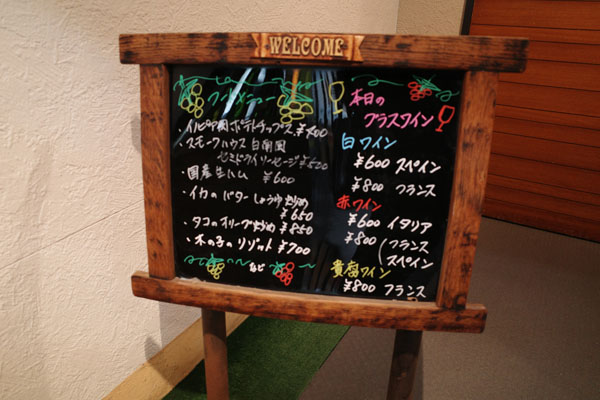 WELCOME
フードメニュー
ポテトチップス ¥400
・スモークハウス 白南風
セミドライソーセージ ¥500
・国産生ハム ¥600
・イカのバターしょうゆ炒め
¥650
・タコのオリーブ炒め ¥850
・木の子のリゾット ¥700
など
本日の
グラスワイン
白ワイン
¥600 スペイン
¥800 フランス
赤ワイン
¥600 イタリア
¥800 (フランス
スペイン
貴腐ワイン
¥800 フランス